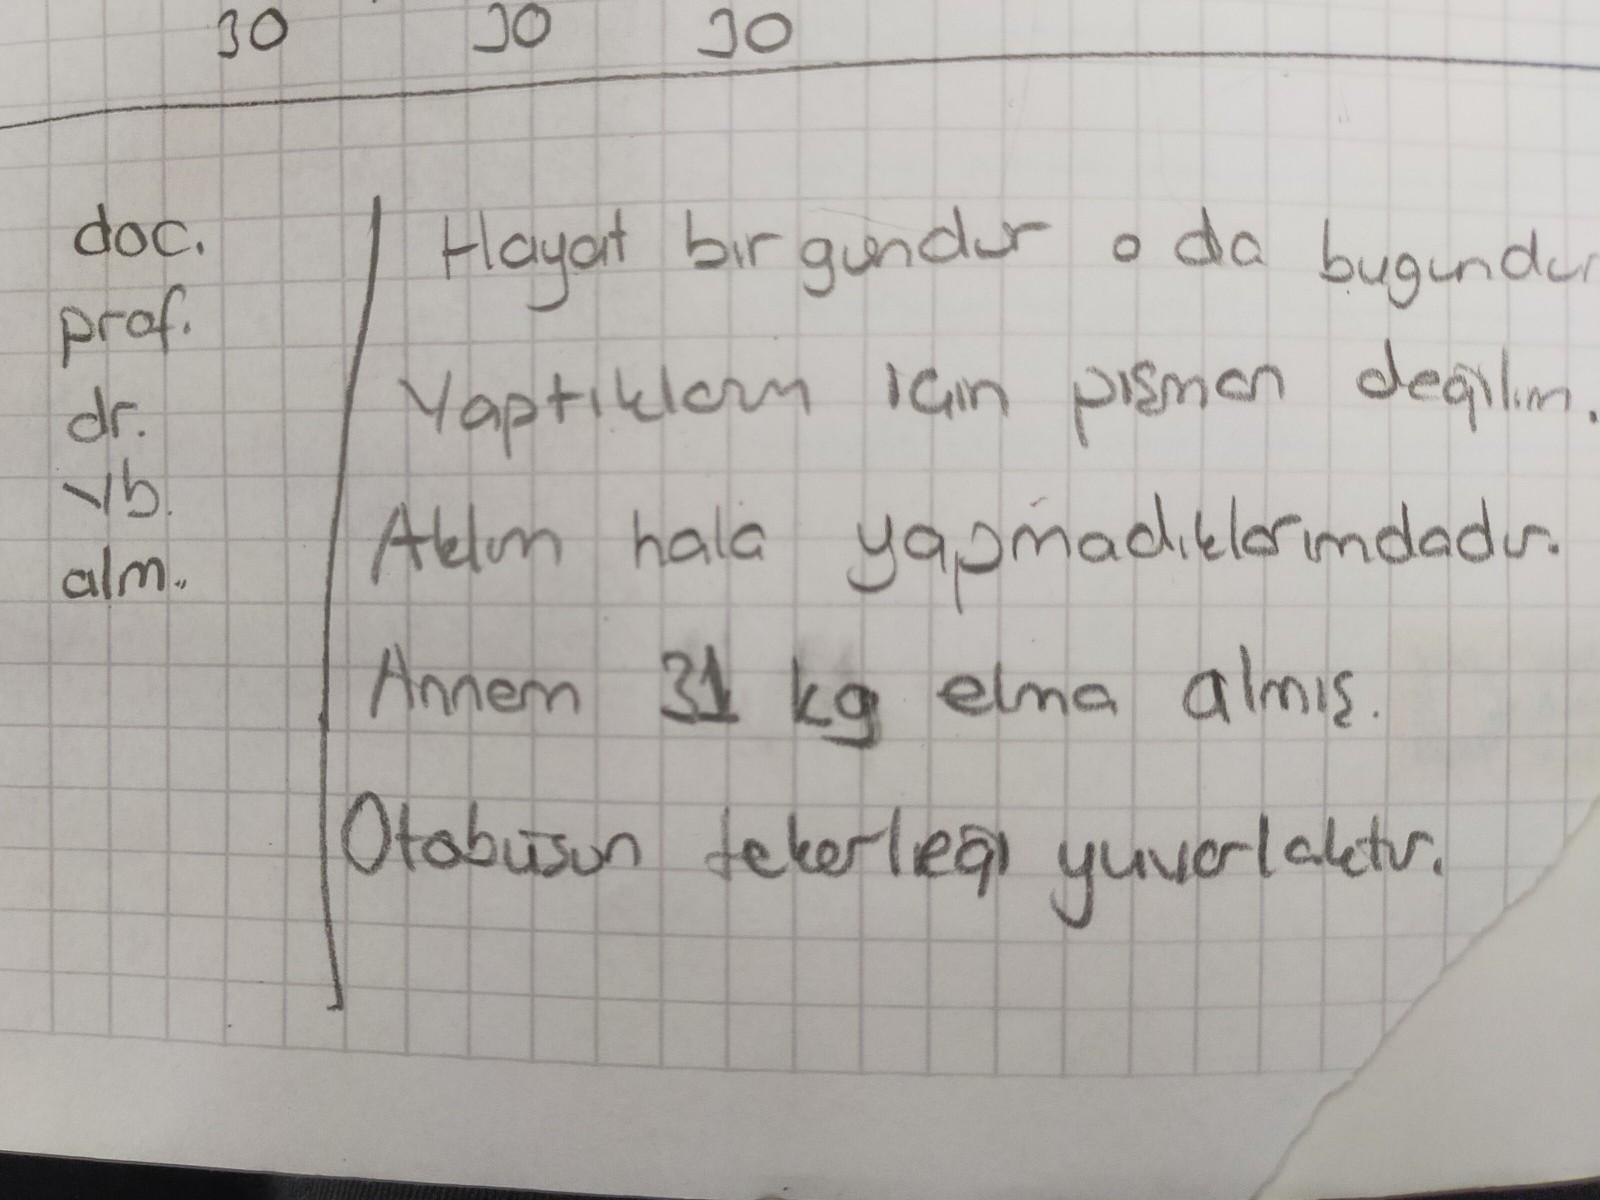 30 30 30
doc.
prof.
dr.
vb.
alm..
Hayat bir gundur o da bugundur
Yaptıklarım için pişman değilim.
Aklım hala yapmadıklarımdadır.
Annem 31 kg elma almış.
Otobüsün tekerleği yuvarlaktır.